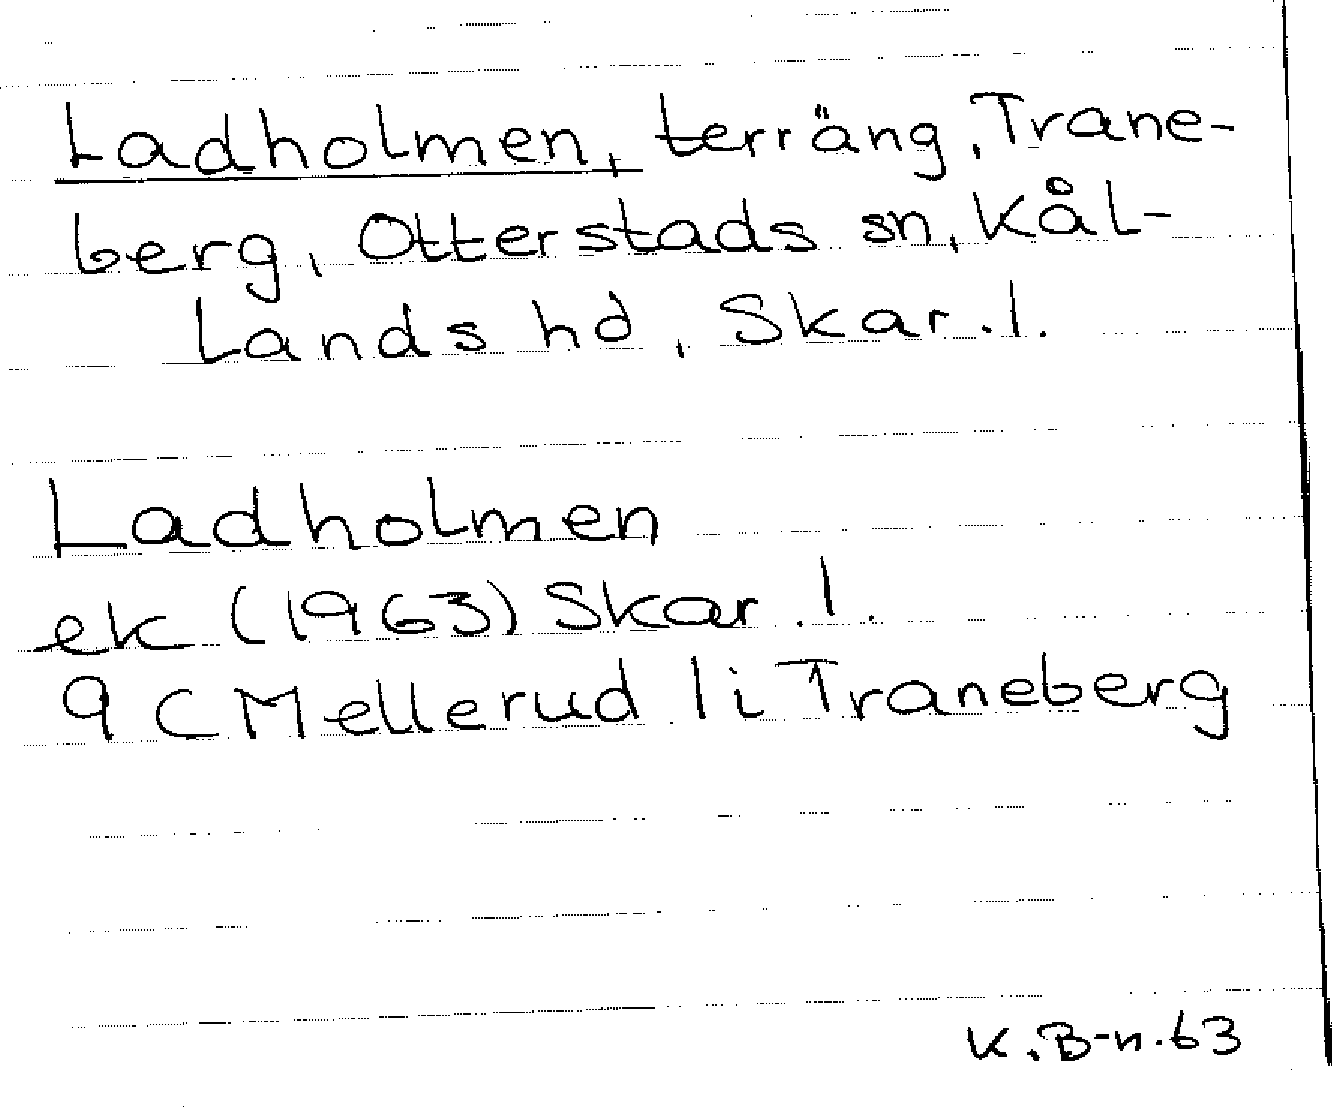 Ladholmen, terräng, Trane-
berg, Otterstads sn, Kål-
lands hd, Skar. l.
Ladholmen
ek (1963) Skar. l.
9 C Mellerud l i Traneberg
K. B-n. 63